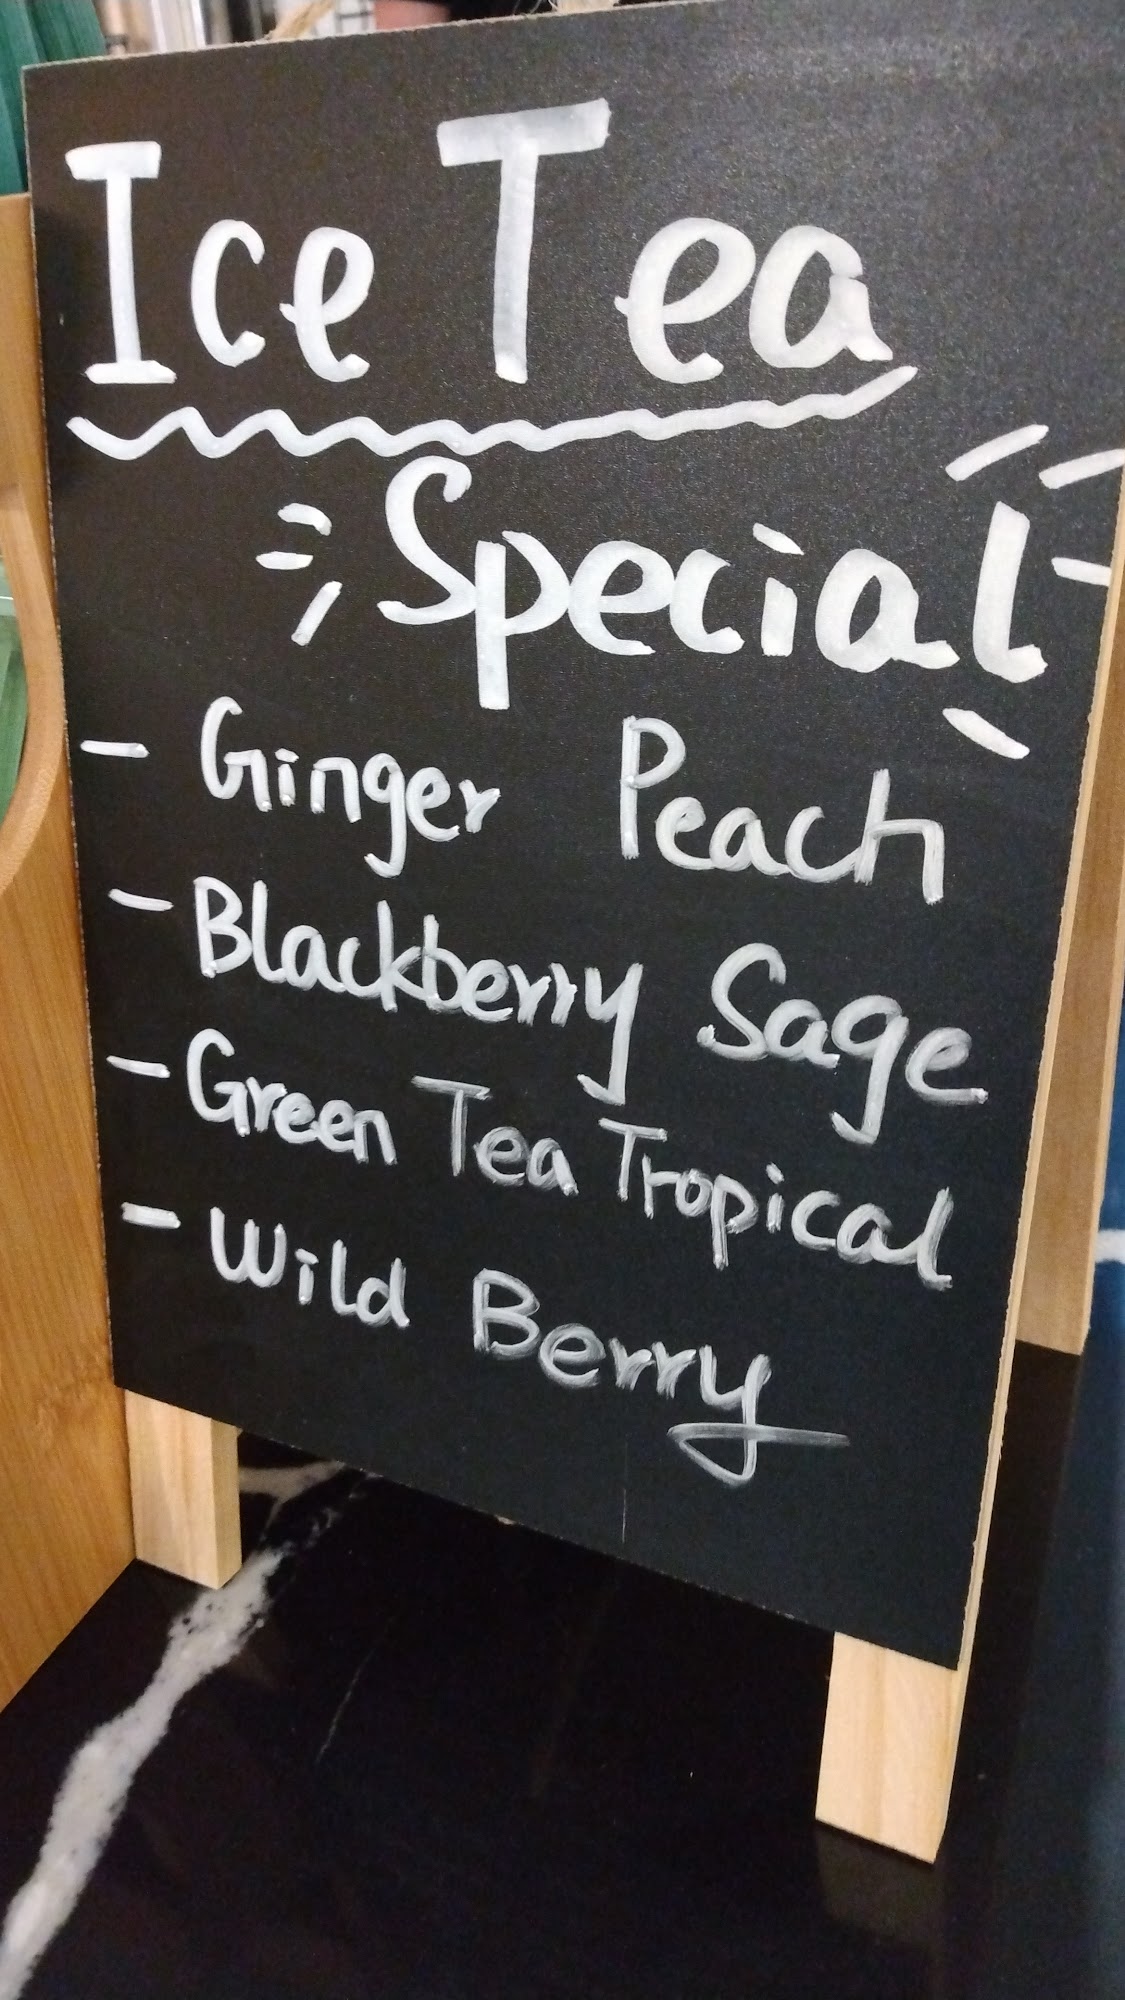 Ice Tea
Special
- Ginger Peach
- Blackberry Sage
- Green Tea Tropical
- Wild Berry